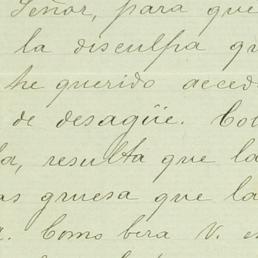 Señor, para que
la disculpa qu
he querido acced
de desagüe. Co
la, resulta que la
as gruesa que la
a. Como bera V. es